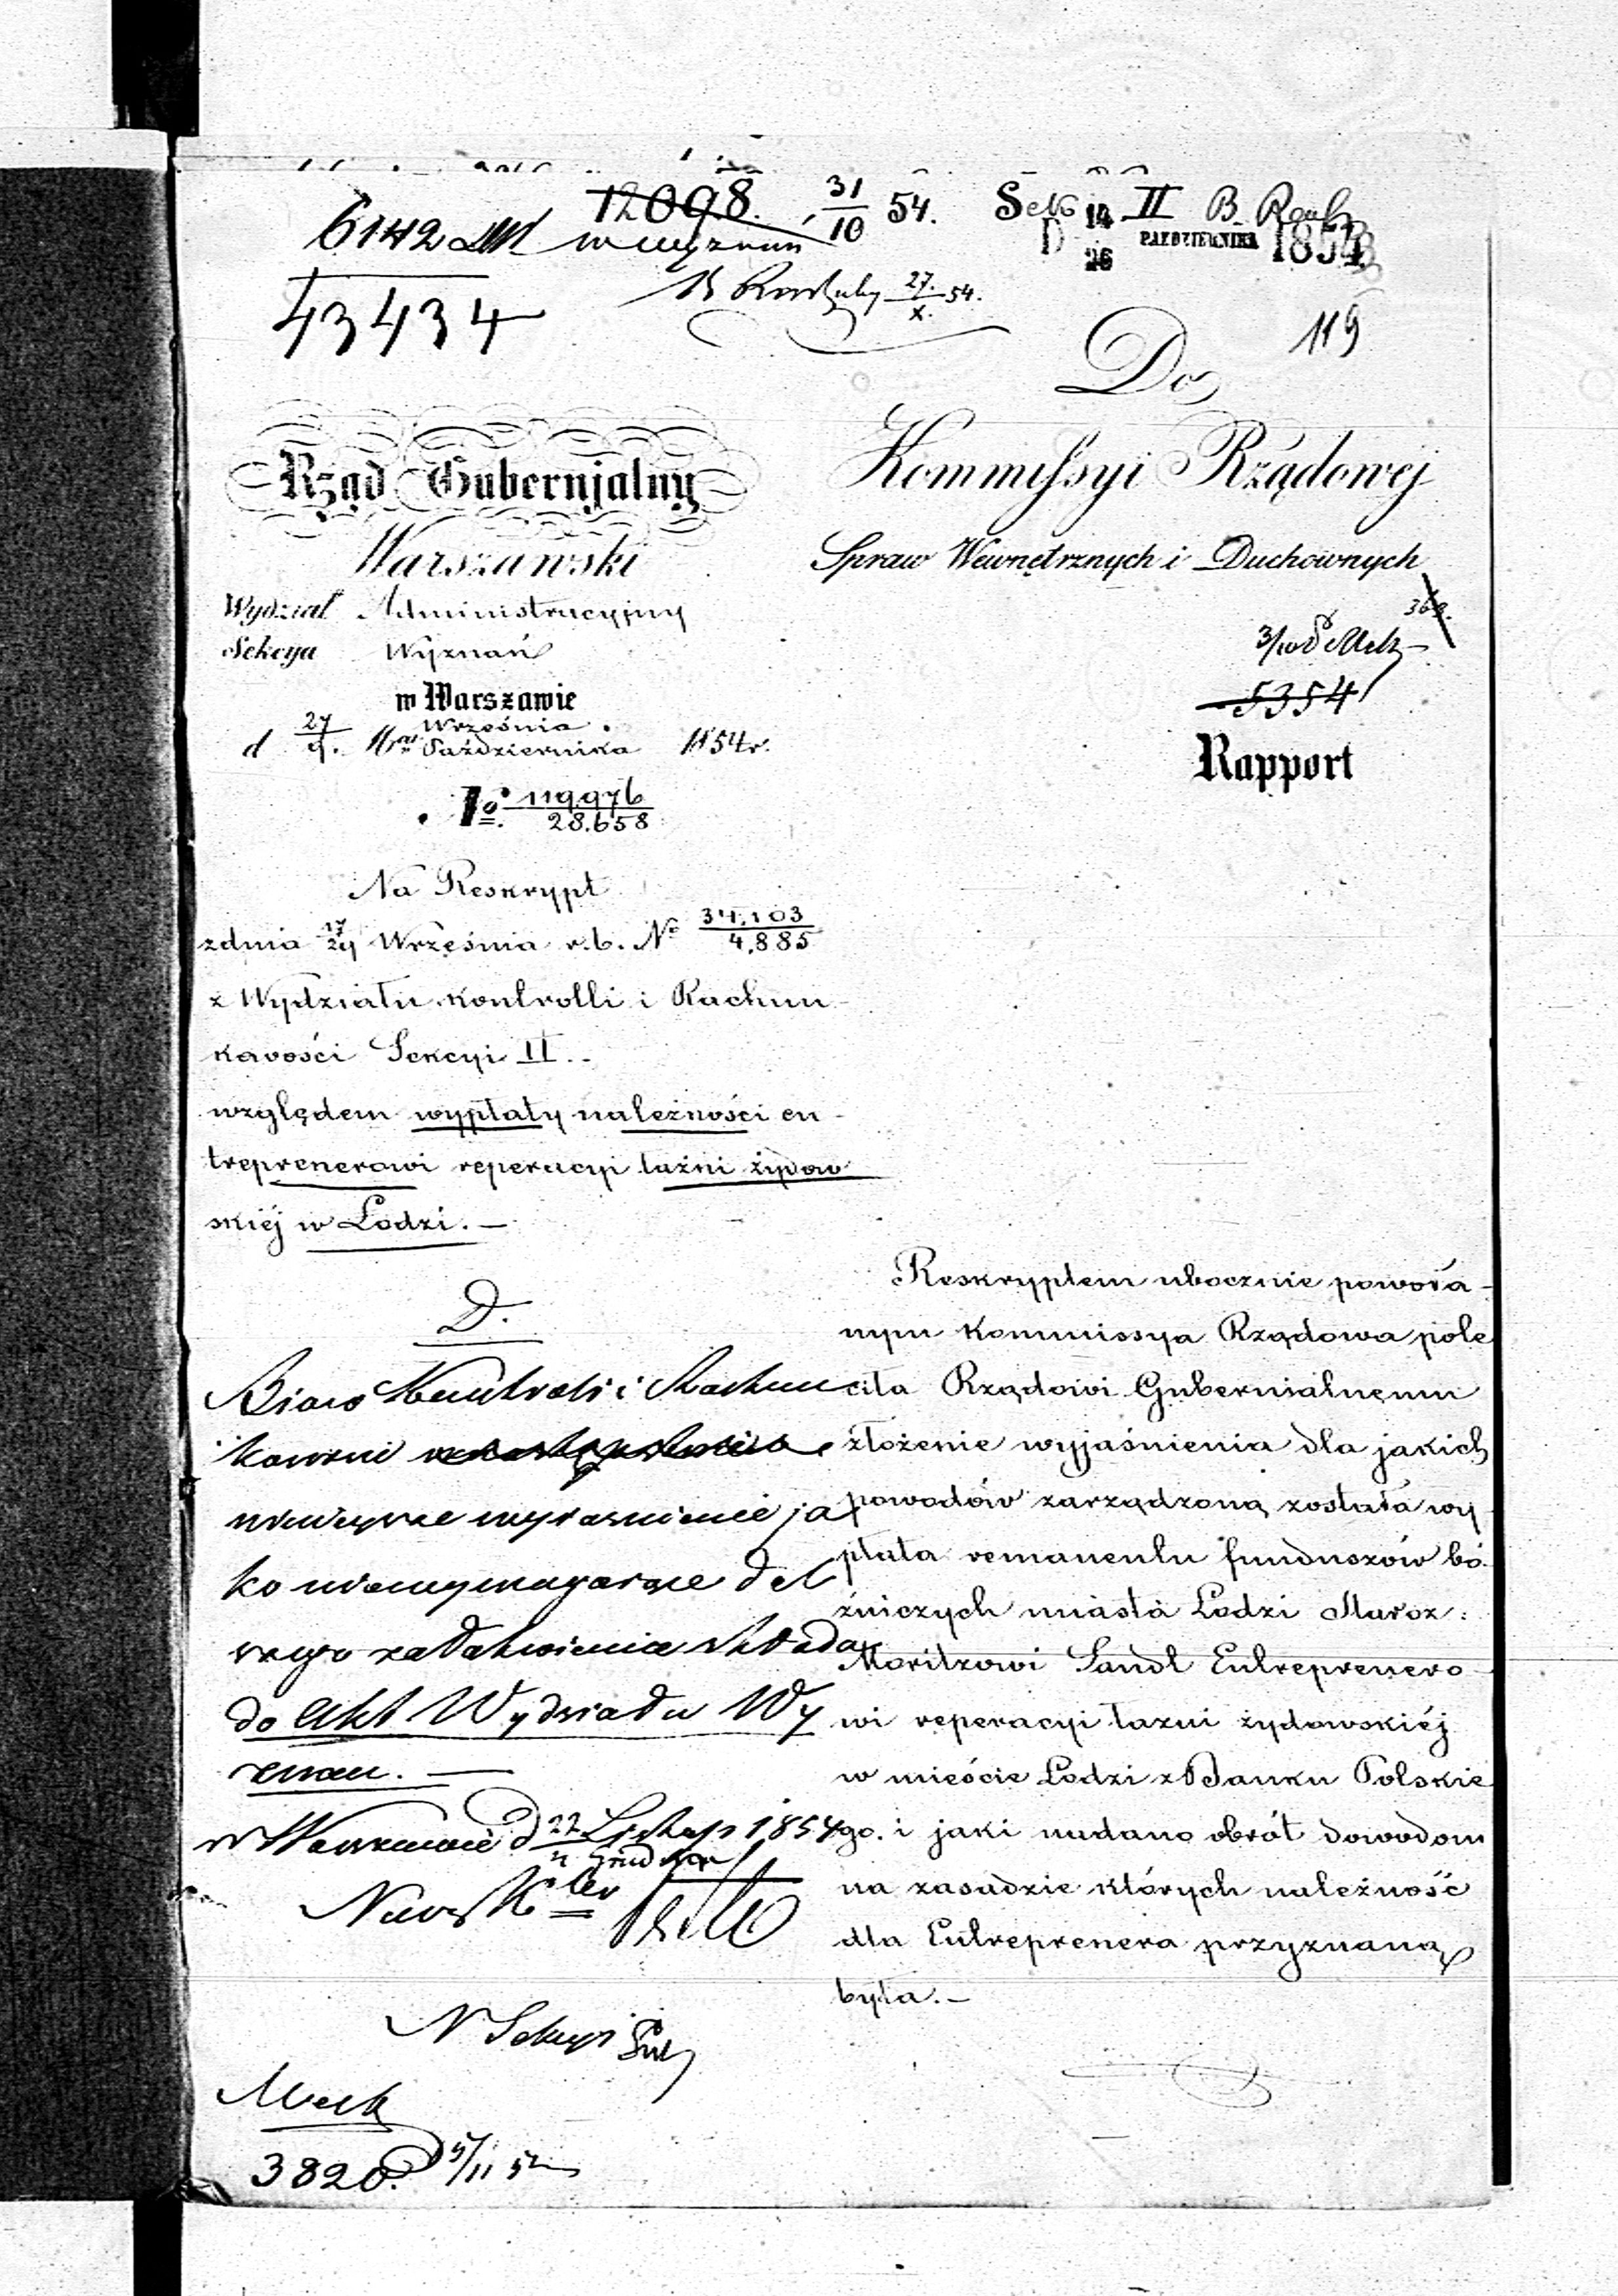 6142
12098. 31/10 54. Sek II
14/26 PAŹDZIERNIKA 1854
43434
27./X. 54.
119
Do
Rząd Gubernjalny
Warszawski
Kommissyi Rządowej
Spraw Wewnętrznych i Duchownych
Wydział Administracyjny
Sekcya Wyznań
w Warszawie
d 27/9. Września/Października 1854 r.
5354
Rapport
No 119976/28.658
Na Reskrypt
z dnia 17/29 Września r.b. No 34,103/4,885
z Wydziału Kontrolli i Rachun-
kowości Sekcyi II.-
względem wypłaty należności en-
treprenerowi reperacyi łaźni żydow
skiéj w Łodzi.-
D.
Biuro Kontroli i Rachun
kowości
niniejsze wyjaśnienie ja
ko niewymagające dal
szego załatwienia składa
do Akt Wydziału Wy
znań. —
w Warszawie d 22 Listop/4 Grud 1854
N Sekcyi
3820. 5/11 54
Reskryptem ubocznie powoła-
nym Kommissya Rządowa pole
ciła Rządowi Gubernialnemu
złożenie wyjaśnienia dla jakich
powodów zarządzoną została wy
płata remanentu funduszów bó-
źniczych miasta Łodzi Staroz:
Moritzowi Landl Entreprenero-
wi reperacyi łaźni żydowskiéj
w mieście Łodzi z Banku Polskie
go. i jaki nadano obrót dowodom
na zasadzie których należność
dla Entreprenera przyznaną
była.-